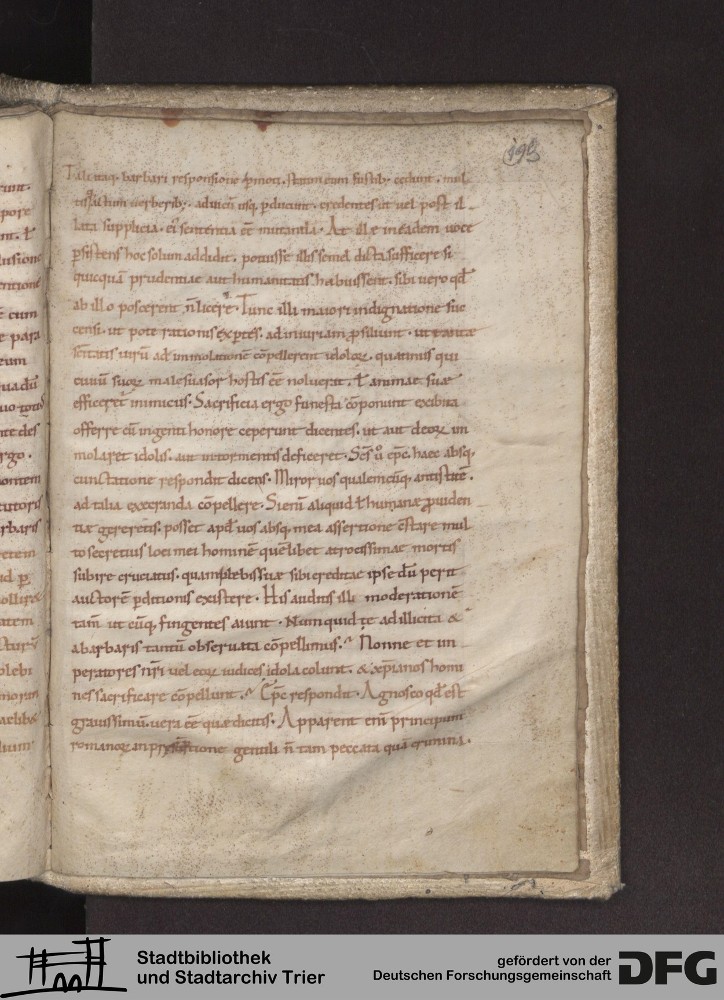 195
Tali itaq. barbari responsione p̄moti. statim eum fustib; cedunt. mul
tisq; actum uerberib; ad uicū usq; p̄ducunt. credentes ut uel post il
lata supplicia. ei; sententia eē mutanda. At ille in eadem uoce
ꝑsistens hoc solum addidit. potuisse illis semel dicta sufficere si
quicquā prudentiae aut humanitatis habuissent. sibi uero qđ
ab illo poscerent n̄ licere. Tunc illi maiori indignatione suc
censi. ut pote rationis exꝑtes. ad iniuriam ꝓsiliunt. ut tantae
sc̄itatis uirū ad immolationē cōpellerent idolorꝝ. quatinus qui
ciuiū suorꝝ malesuasor hostis eē noluerat. ł animae suae
efficeret inimicus. Sacrificia ergo funesta cōponunt exibita
offerre cū ingenti honore ceperunt dicentes. ut aut deorꝝ im
molaret idolis. aut in tormentis deficeret. Sc̄s ū ep̄c. haec absq;
cunctatione respondit dicens. Miror uos qualemcūq; antistitē.
ad talia exxeranda cōpellere. Si enim aliquid ł humanae ꝓuiden
tiae gereretis. posset apđ uos absq; mea assertione c̄stare mul
to secretius loci mei hominē quēlibet atrocissimae mortis
subire cruciatus. quam plebis suae sibi creditae ipse dū perit
auctorē ꝑditionis existere. His auditis illi moderationē
tam ut cūq; fingentes aiunt. Numquid te ad illicita &
a barbaris tantū obseruata cōpellimus. Nonne et im
peratores nr̄i uel eorꝝ iudices idola colunt. & xp̄ianos homi
nes sacrificare cōpellunt. Ep̄c respondit. Agnosco qđ est
grauissimū. uera eē quae dicitis. Apparent eni principum
romanorꝝ in gentili n̄ tam peccata quā crimina.
Stadtbibliothek
und Stadtarchiv Trier
gefördert von der
Deutschen Forschungsgemeinschaft
DFG